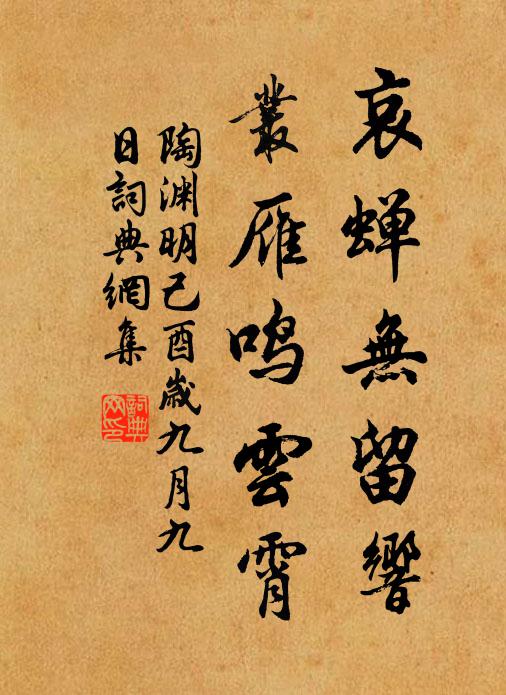 哀蝉無留響
叢雁鸣雲霄
陶渊明己酉歳九月九
日詞典網集
詞典
网印